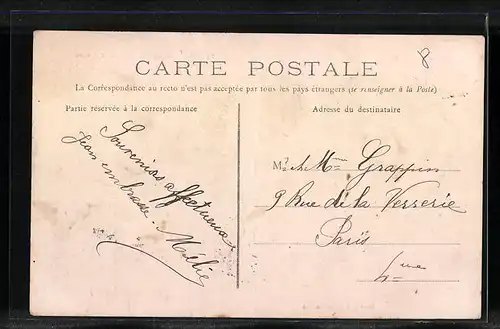 8
CARTE POSTALE
La Correspondance au recto n'est pas acceptée par tous les pays étrangers (se renseigner à la Poste)
Partie réservée à la correspondance
Adresse du destinataire
Souvenirs affectueux
Jean embrasse Mélie
M. & Mme Grappin
9 Rue de la Verrerie
Paris
4me